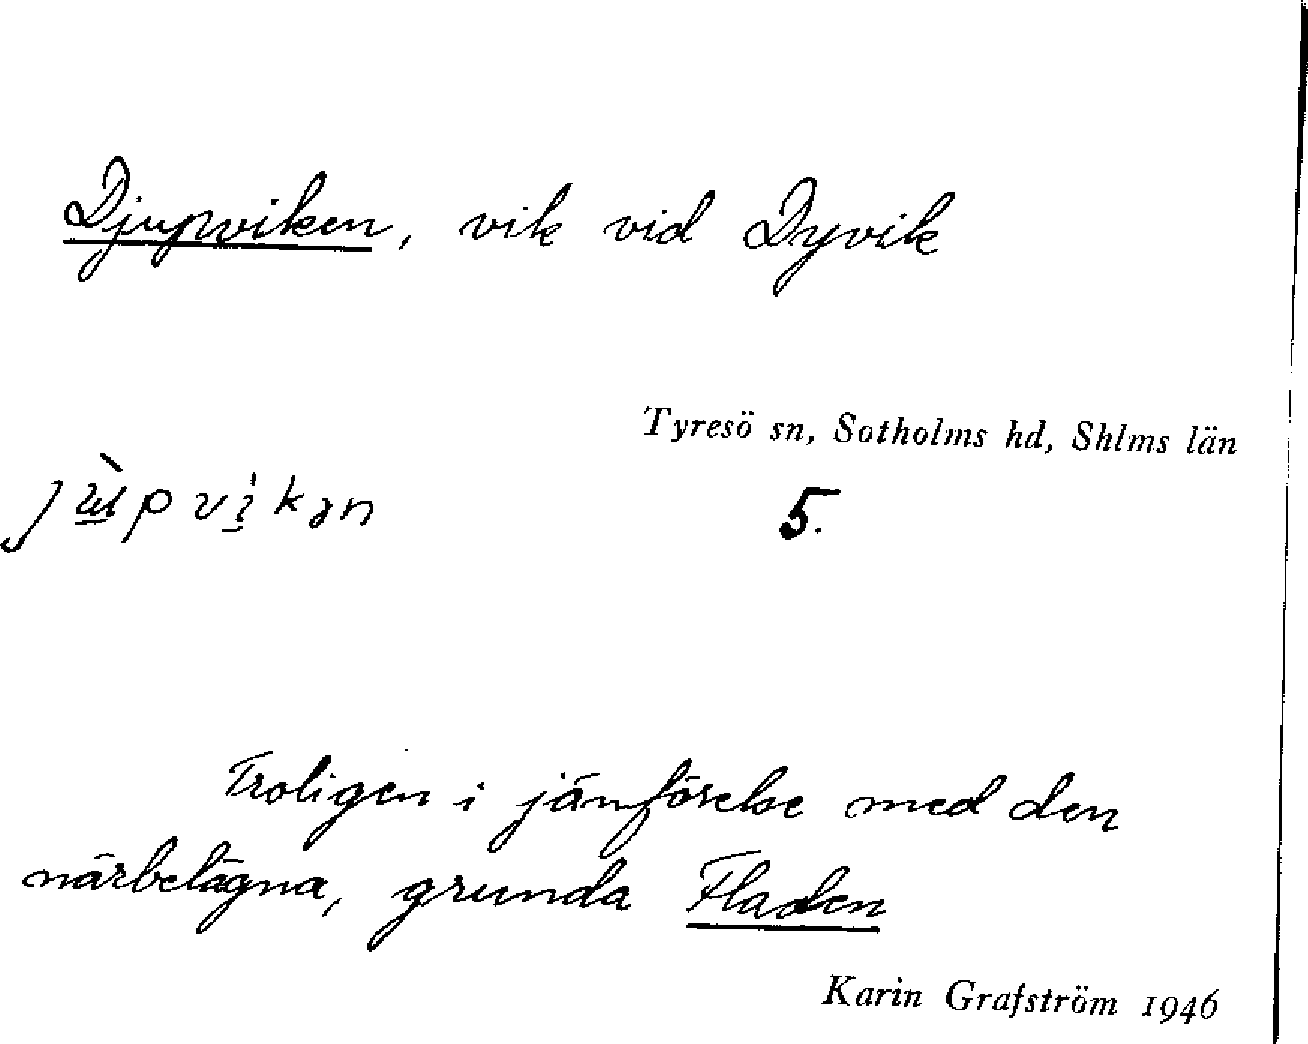 Djupviken, vik vid Dyvik
Tyresö sn, Sotholms hd, Shlms län
jɯ̀pvikən
5.
Troligen i jämförelse med den
närbelägna, grunda Fladen
Karin Grafström 1946